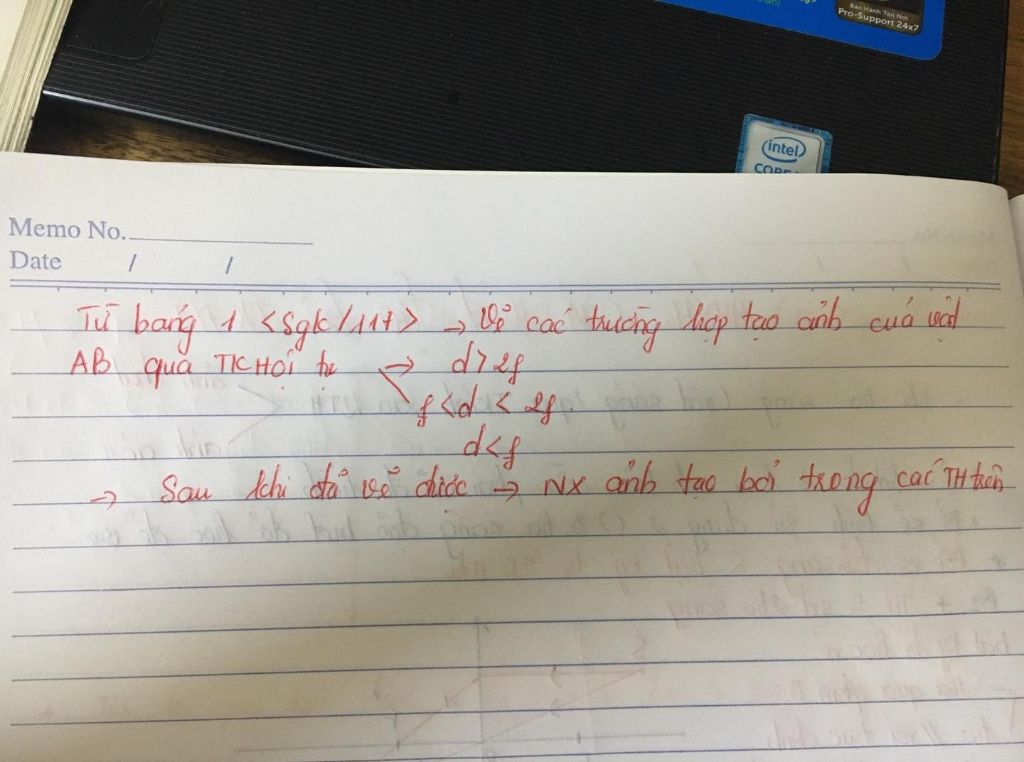 Bảo Hành Tận Nơi
Pro-Support 24x7
intel
CORE
Memo No.
Date / /
Từ bảng 1 <Sgk/117> → Vẽ các trường hợp tạo ảnh của vật
AB qua TK Hội tụ → d>2f
f<d< 2f
d<f
→ Sau khi đã vẽ được → NX ảnh tạo bởi trong các TH trên